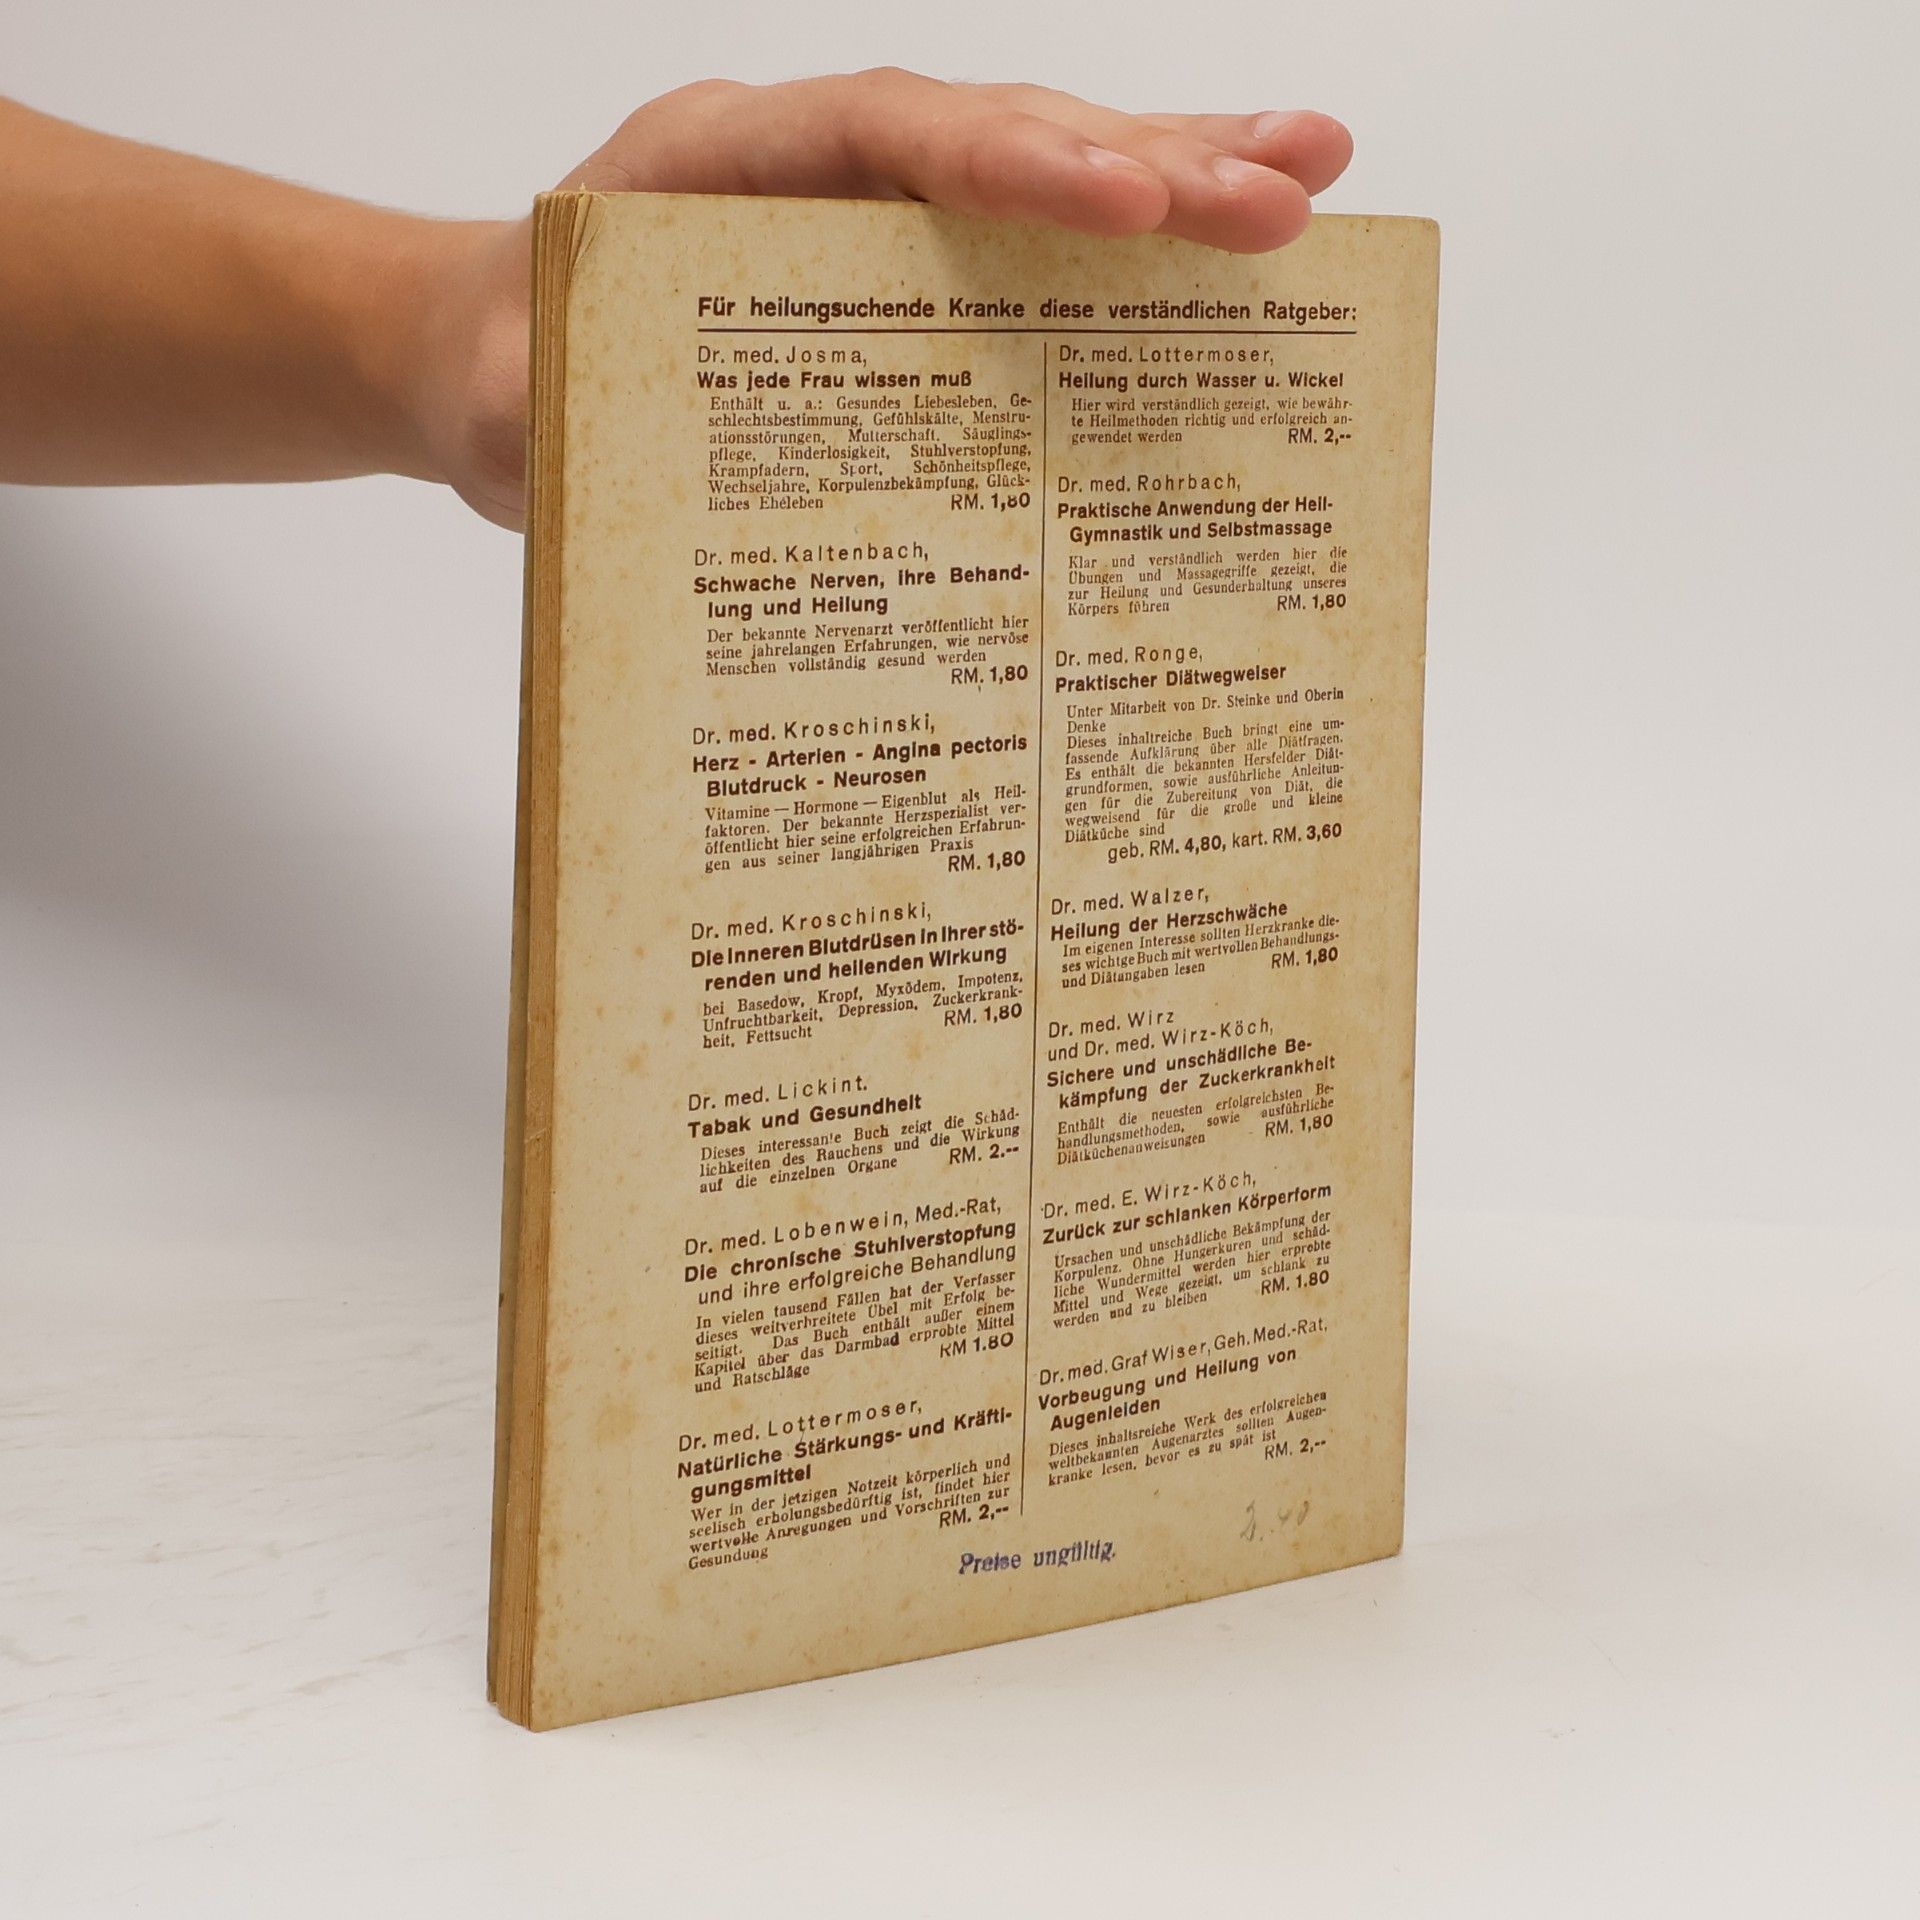 Für heilungsuchende Kranke diese verständlichen Ratgeber:
Dr. med. Josma,
Was jede Frau wissen muß
Enthält u. a.: Gesundes Liebesleben, Ge-
schlechtsbestimmung, Gefühlskälte, Menstru-
ationsstörungen, Mutterschaft, Säuglings-
pflege, Kinderlosigkeit, Stuhlverstopfung,
Krampfadern, Sport, Schönheitspflege,
Wechseljahre, Korpulenzbekämpfung, Glück-
liches Eheleben RM. 1,80
Dr. med. Kaltenbach,
Schwache Nerven, ihre Behand-
lung und Heilung
Der bekannte Nervenarzt veröffentlicht hier
seine jahrelangen Erfahrungen, wie nervöse
Menschen vollständig gesund werden
RM. 1,80
Dr. med. Kroschinski,
Herz - Arterien - Angina pectoris
Blutdruck - Neurosen
Vitamine — Hormone — Eigenblut als Heil-
faktoren. Der bekannte Herzspezialist ver-
öffentlicht hier seine erfolgreichen Erfahrun-
gen aus seiner langjährigen Praxis
RM. 1,80
Dr. med. Kroschinski,
Die inneren Blutdrüsen in ihrer stö-
renden und heilenden Wirkung
bei Basedow, Kropf, Myxödem, Impotenz,
Unfruchtbarkeit, Depression, Zuckerkrank-
heit, Fettsucht RM. 1,80
Dr. med. Lickint.
Tabak und Gesundheit
Dieses interessante Buch zeigt die Schäd-
lichkeiten des Rauchens und die Wirkung
auf die einzelnen Organe RM. 2.--
Dr. med. Lobenwein, Med.-Rat,
Die chronische Stuhlverstopfung
und ihre erfolgreiche Behandlung
In vielen tausend Fällen hat der Verfasser
dieses weitverbreitete Übel mit Erfolg be-
seitigt. Das Buch enthält außer einem
Kapitel über das Darmbad erprobte Mittel
und Ratschläge RM 1.80
Dr. med. Lottermoser,
Natürliche Stärkungs- und Kräfti-
gungsmittel
Wer in der jetzigen Notzeit körperlich und
seelisch erholungsbedürftig ist, findet hier
wertvolle Anregungen und Vorschriften zur
Gesundung RM. 2,--
Dr. med. Lottermoser,
Heilung durch Wasser u. Wickel
Hier wird verständlich gezeigt, wie bewähr-
te Heilmethoden richtig und erfolgreich an-
gewendet werden RM. 2,--
Dr. med. Rohrbach,
Praktische Anwendung der Heil-
Gymnastik und Selbstmassage
Klar und verständlich werden hier die
Übungen und Massagegriffe gezeigt, die
zur Heilung und Gesunderhaltung unseres
Körpers führen RM. 1,80
Dr. med. Ronge,
Praktischer Diätwegweiser
Unter Mitarbeit von Dr. Steinke und Oberin
Denke
Dieses inhaltreiche Buch bringt eine um-
fassende Aufklärung über alle Diätfragen.
Es enthält die bekannten Hersfelder Diät-
grundformen, sowie ausführliche Anleitun-
gen für die Zubereitung von Diät, die
wegweisend für die große und kleine
Diätküche sind
geb. RM. 4,80, kart. RM. 3,60
Dr. med. Walzer,
Heilung der Herzschwäche
Im eigenen Interesse sollten Herzkranke die-
ses wichtge Buch mit wertvollen Behandlungs-
und Diätangaben lesen RM. 1,80
Dr. med. Wirz
und Dr. med. Wirz-Köch,
Sichere und unschädliche Be-
kämpfung der Zuckerkrankheit
Enthält die neuesten erfolgreichsten Be-
handlungsmethoden, sowie ausführliche
Diätküchenanweisungen RM. 1,80
Dr. med. E. Wirz-Köch,
Zurück zur schlanken Körperform
Ursachen und unschädliche Bekämpfung der
Korpulenz. Ohne Hungerkuren und schäd-
liche Wundermittel werden hier erprobte
Mittel und Wege gezeigt, um schlank zu
werden und zu bleiben RM. 1.80
Dr. med. Graf Wiser, Geh. Med.-Rat,
Vorbeugung und Heilung von
Augenleiden
Dieses inhaltsreiche Werk des erfolgreichen
weltbekannten Augenarztes sollten Augen-
kranke lesen, bevor es zu spät ist
RM. 2,--
Preise ungültig.